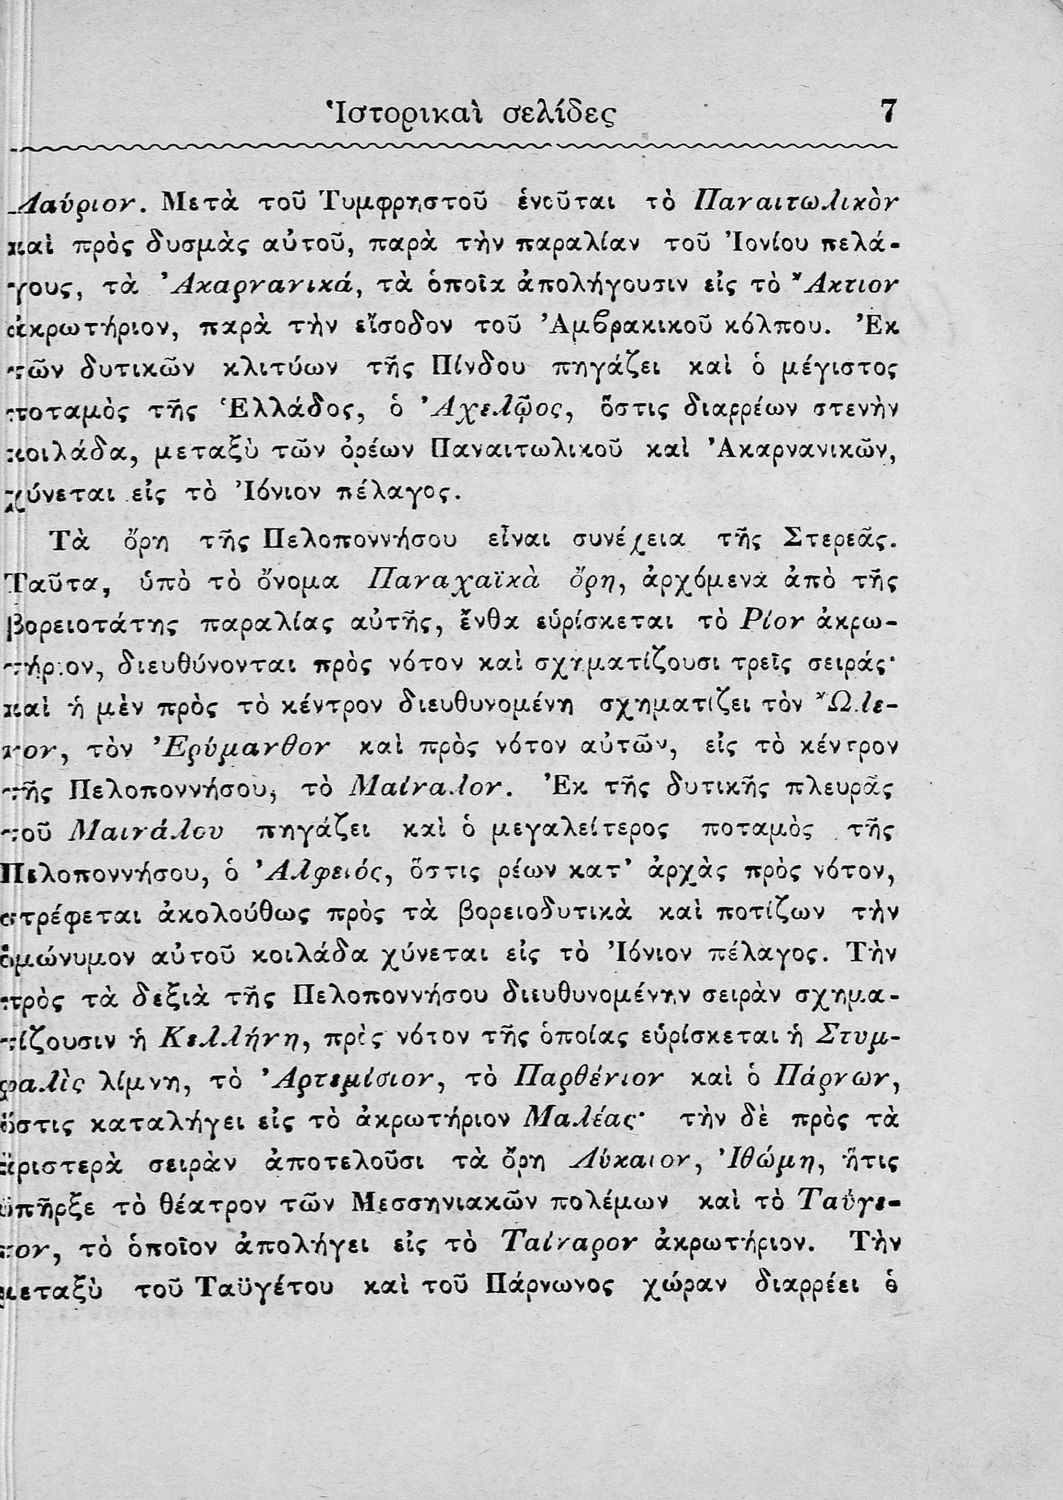 Ἱστορικαὶ σελίδες 7
Λαύριον. Μετὰ τοῦ Τυμφρηστοῦ ἑνοῦται τὸ Παναιτωλικὸν
καὶ πρὸς δυσμὰς αὐτοῦ, παρὰ τὴν παραλίαν τοῦ Ἰονίου πελά-
γους, τὰ Ἀκαρνανικά, τὰ ὁποῖα ἀπολήγουσιν εἰς τὸ Ἄκτιον
ἀκρωτήριον, παρὰ τὴν εἴσοδον τοῦ Ἀμβρακικοῦ κόλπου. Ἐκ
τῶν δυτικῶν κλιτύων τῆς Πίνδου πηγάζει καὶ ὁ μέγιστος
ποταμὸς τῆς Ἑλλάδος, ὁ Ἀχελῷος, ὅστις διαρρέων στενὴν
κοιλάδα, μεταξὺ τῶν ὀρέων Παναιτωλικοῦ καὶ Ἀκαρνανικῶν,
χύνεται εἰς τὸ Ἰόνιον πέλαγος.
Τὰ ὄρη τῆς Πελοποννήσου εἶναι συνέχεια τῆς Στερεᾶς.
Ταῦτα, ὑπὸ τὸ ὄνομα Παναχαϊκὰ ὄρη, ἀρχόμενα ἀπὸ τῆς
βορειοτάτης παραλίας αὐτῆς, ἔνθα εὑρίσκεται τὸ Ρίον ἀκρω-
τήριον, διευθύνονται πρὸς νότον καὶ σχηματίζουσι τρεῖς σειράς·
καὶ ἡ μὲν πρὸς τὸ κέντρον διευθυνομένη σχηματίζει τὸν Ὤλε-
νον, τὸν Ἐρύμανθον καὶ πρὸς νότον αὐτῶν, εἰς τὸ κέντρον
τῆς Πελοποννήσου, τὸ Μαίναλον. Ἐκ τῆς δυτικῆς πλευρᾶς
τοῦ Μαινάλου πηγάζει καὶ ὁ μεγαλείτερος ποταμὸς τῆς
Πελοποννήσου, ὁ Ἀλφειός, ὅστις ρέων κατ' ἀρχὰς πρὸς νότον,
στρέφεται ἀκολούθως πρὸς τὰ βορειοδυτικὰ καὶ ποτίζων τὴν
ὁμώνυμον αὐτοῦ κοιλάδα χύνεται εἰς τὸ Ἰόνιον πέλαγος. Τὴν
πρὸς τὰ δεξιὰ τῆς Πελοποννήσου διευθυνομένην σειρὰν σχημα-
τίζουσιν ἡ Κελλήνη, πρὸς νότον τῆς ὁποίας εὑρίσκεται ἡ Στυμ-
φαλὶς λίμνη, τὸ Ἀρτεμίσιον, τὸ Παρθένιον καὶ ὁ Πάρνων,
ὅστις καταλήγει εἰς τὸ ἀκρωτήριον Μαλέας· τὴν δὲ πρὸς τὰ
ἀριστερὰ σειρὰν ἀποτελοῦσι τὰ ὄρη Λύκαιον, Ἰθώμη, ἥτις
ὑπῆρξε τὸ θέατρον τῶν Μεσσηνιακῶν πολέμων καὶ τὸ Ταΰγε-
τον, τὸ ὁποῖον ἀπολήγει εἰς τὸ Ταίναρον ἀκρωτήριον. Τὴν
μεταξὺ τοῦ Ταϋγέτου καὶ τοῦ Πάρνωνος χώραν διαρρέει ὁ